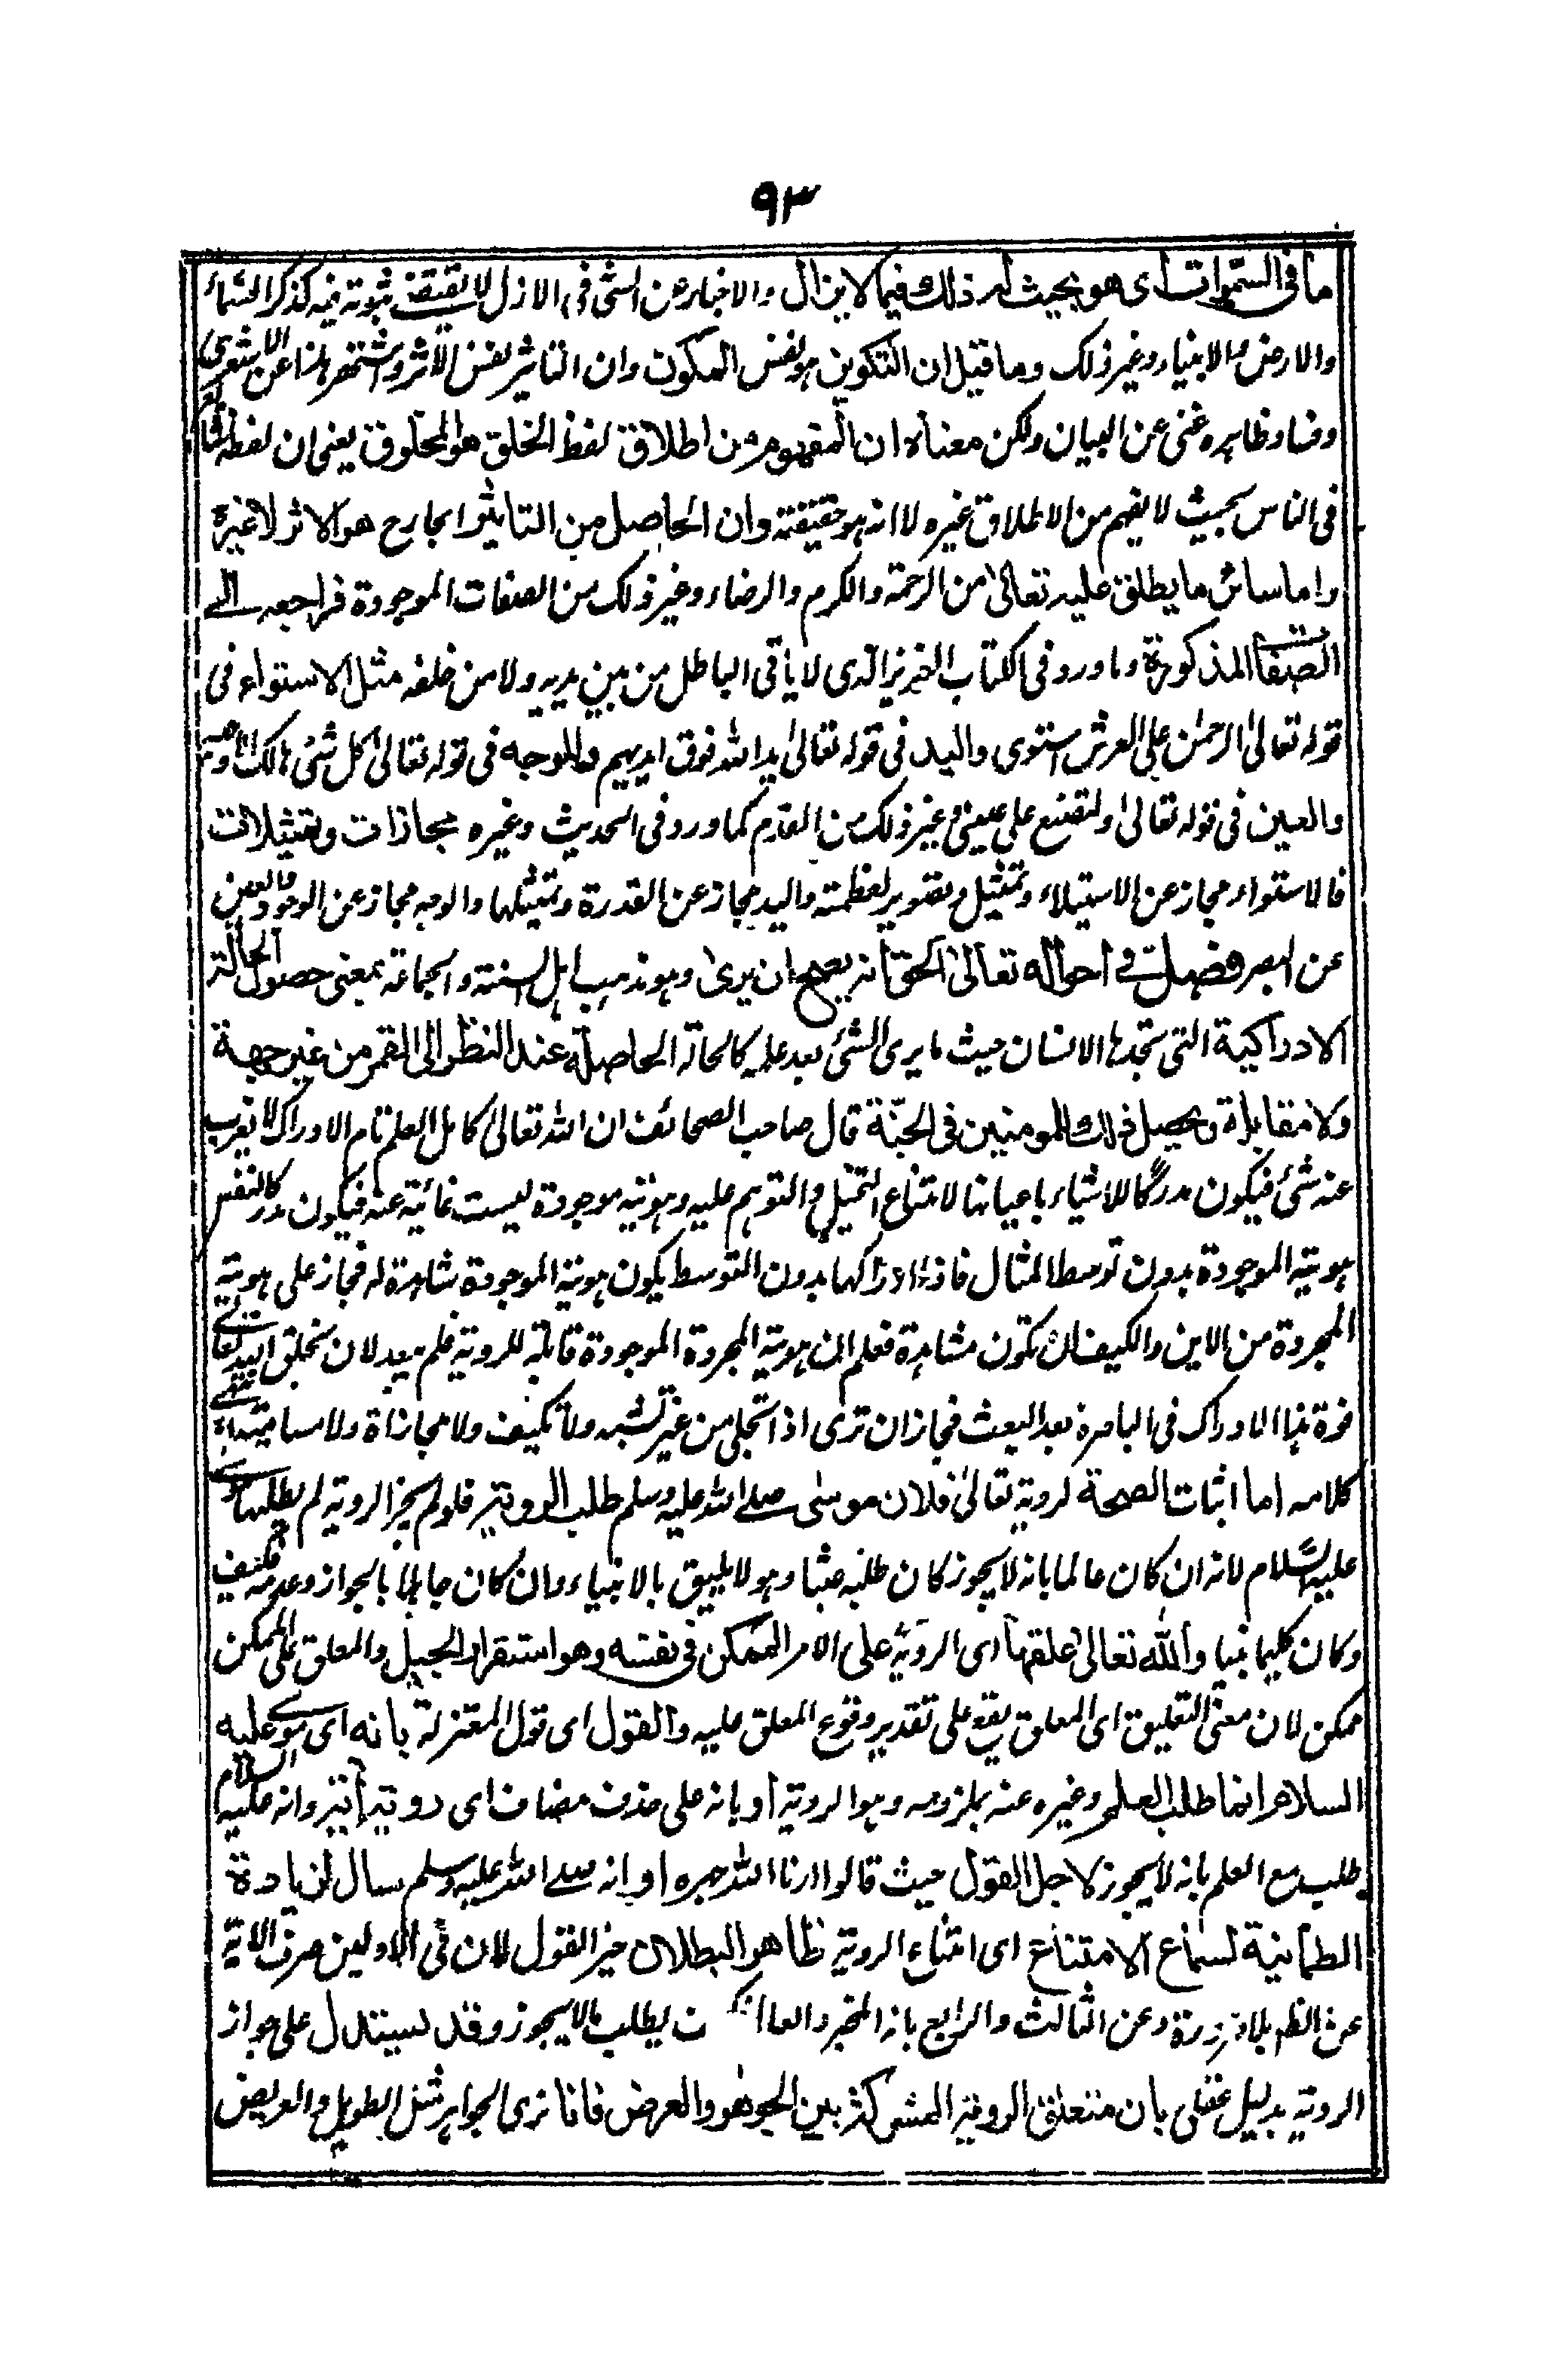 ٩٣
ما فى السّموات اى هو بحيث له ذلك فيما لا يزال والاخبار عن الشئ فى الازل لا يقتضے ثبوته فيه كذكر السماء
والارض والانبياء وغير ذلك وما قيل ان التكوين هو نفس المكون وان التاثير نفس الاثر واشتهر هذا عن الاشعرى
وفساد ظاهره غنى عن البيان ولكن معناه ان المفهوم من اطلاق لفظ الخلق هو المخلوق يعنى ان لفظه شاع
فى الناس بحيث لا يفهم من الاطلاق غيره لا انه هو حقيقته وان الحاصل من التاثير الخارج هو الاثر لا غيره
واما سائر ما يطلق عليه تعالىٰ من الرحمة والكرم والرضاء وغير ذلك من الصفات الموجودة فراجعه الے
الصفات المذكورة وما ورد فى الكتاب العزيز الذى لا ياتى الباطل من بين يديه ولا من خلفه مثل الاستواء فى
قوله تعالىٰ الرحمٰن على العرش استوى واليد فى قوله تعالىٰ يد الله فوق ايديهم والوجه فى قوله تعالىٰ كل شئ هالك الا وجهه
والعين فى قوله تعالىٰ ولتصنع على عينى وغير ذلك من القدم كما ورد فى الحديث وغيره مجازات وتمثيلات
فالاستواء مجاز عن الاستيلاء وتمثيل وتصوير لعظمته واليد مجاز عن القدرة وتمثيلها والوجه مجاز عن الوجود والعين
عن البصر فصل فے احواله تعالىٰ الحق انه يصح ان يرىٰ وهو مذهب اهل السنة والجماعة بمعنى حصول الحالة
الادراكية التى تجدها الانسان حيث ما يرى الشئ بعد علمه كالحالة الحاصلة عند النظر الى القمر من غير جهة
ولا مقابلة ويحصل ذلك للمومنين فى الجنّة قال صاحب الصحائف ان الله تعالىٰ كامل العلم تام الادراك لا يعزب
عنه شئ فيكون مدركًا للاشياء باعيانها لامتناع التخيل والتوهم عليه وهويته موجودة ليست غائبة عنه فيكون مدركا لنفس
هويته الموجودة بدون توسط المثال فاذا ادراكها بدون التوسط يكون هويته الموجودة شاهدة له فجاز على هويته
المجردة من الاين والكيف ان تكون مشاهدة فعلم ان هويته المجردة الموجودة قابلة للروية فلم يبعد لان يخلق الله تعالے
قوة هذا الادراك فى الباصرة بعد البعث فجاز ان ترى اذا تجلى من غير تشبه ولا تكييف ولا محاذاة ولا مسامتة انتهے
كلامه اما اثبات الصحة لروية تعالىٰ فلان موسىٰ صلے الله عليه وسلم طلب الروية فلو لم يجز الروية لم يطلبها موسے
عليه السّلام لانه ان كان عالما بانه لا يجوز كان طلبه عبثا وهو لا يليق بالانبياء وان كان جاهلا بالجواز وعدمه فكيف
وكان كليما نبيا والله تعالىٰ علقها اى الروية على الامر الممكن فى نفسه وهو استقرار الجبل والمعلق على الممكن
ممكن لان معنى التعليق اى المعلق يقع على تقدير وقوع المعلق عليه والقول اى قول المعتزلة بانه اى موسے عليه
السلام انما طلب العلم وغيره عنه بملزومه وهو الروية او بانه على حذف مضاف اى روية آية وانه عليه السلام
طلب مع العلم بانه لا يجوز لاجل القول حيث قالوا ارنا الله جهره او انه صلے الله عليه وسلم سال لزيادة
الطمانية لسماع الامتناع اى امتناع الروية ظاهر البطلان خبر القول لان فى الاولين صرف الآية
عن الظاهر بلا ضرورة وعن الثالث والرابع بانه المخبر والعا ن يطلب مالا يجوز وقد يستدل على جواز
الروية بدليل عقلى بان متعلق الروية المشتركة بين الجوهر والعرض فانا نرى الجواهر مثل الطويل والعريض